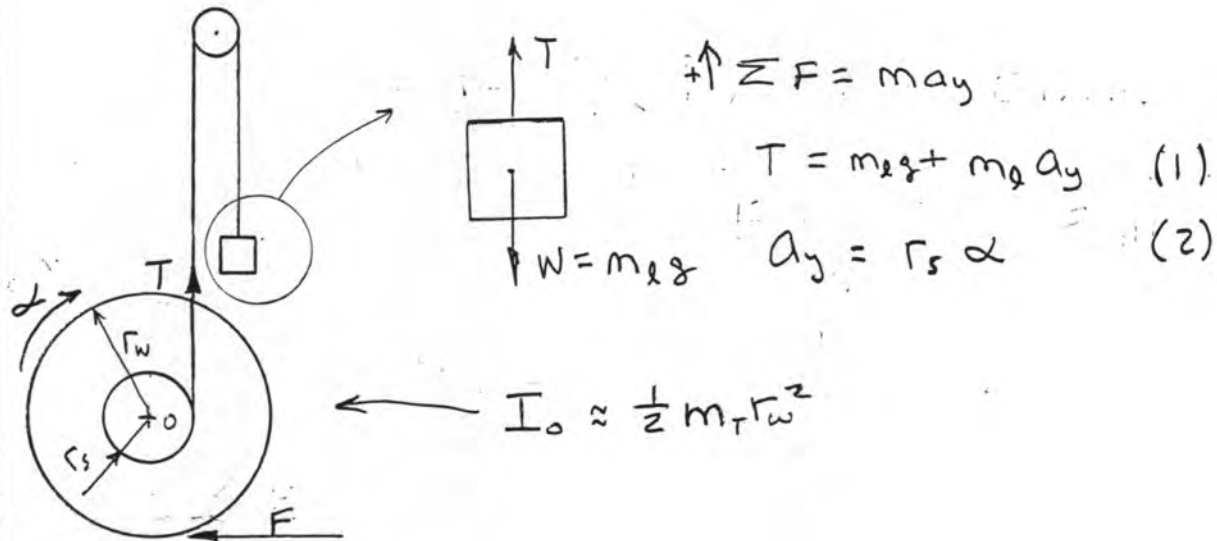 T
+↑ Σ F = may
T = mₗg + mₗ ay (1)
W = mₗg
ay = rₛ α (2)
T
α
r_w
O
rₛ
I₀ ≈ ½ m_T r_w²
F